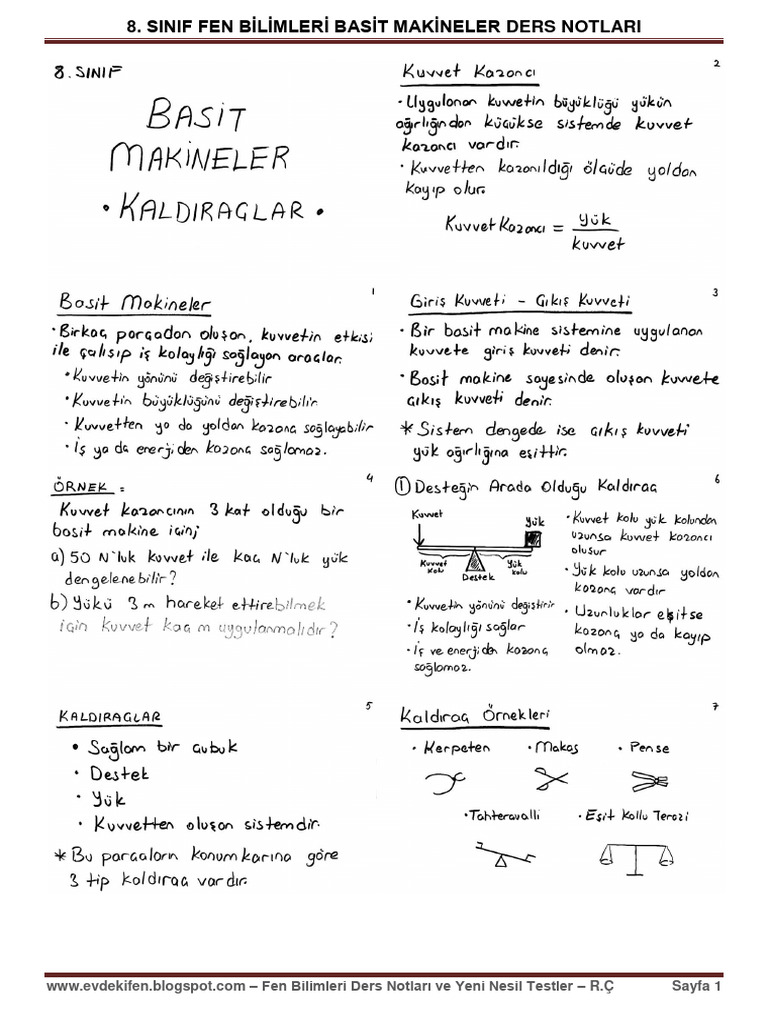 8. SINIF FEN BİLİMLERİ BASİT MAKİNELER DERS NOTLARI
8. SINIF
BASİT
MAKİNELER
• KALDIRAÇLAR •
1
Kuvvet Kazancı
2
• Uygulanan kuvvetin büyüklüğü yükün
ağırlığından küçükse sistemde kuvvet
kazancı vardır.
• Kuvvetten kazanıldığı ölçüde yoldan
kayıp olur.
Kuvvet Kazancı = Yük
kuvvet
Basit Makineler
• Birkaç parçadan oluşan, kuvvetin etkisi
ile çalışıp iş kolaylığı sağlayan araçlar.
• Kuvvetin yönünü değiştirebilir
• Kuvvetin büyüklüğünü değiştirebilir.
• Kuvvetten ya da yoldan kazanç sağlayabilir
• İş ya da enerjiden kazanç sağlamaz.
Giriş Kuvveti - Çıkış Kuvveti
3
• Bir basit makine sistemine uygulanan
kuvvete giriş kuvveti denir.
• Basit makine sayesinde oluşan kuvvete
çıkış kuvveti denir.
* Sistem dengede ise çıkış kuvveti
yük ağırlığına eşittir.
4
ÖRNEK :
Kuvvet kazancının 3 kat olduğu bir
basit makine için;
a) 50 N'luk kuvvet ile kaç N'luk yük
dengelenebilir?
b) Yükü 3 m hareket ettirebilmek
için kuvvet kaç m uygulanmalıdır?
① Desteğin Arada Olduğu Kaldıraç
6
Kuvvet
Yük
Kuvvet
kolu
Destek
Yük
kolu
• Kuvvetin yönünü değiştirir
• İş kolaylığı sağlar
• İş ve enerjiden kazanç
sağlamaz.
• Kuvvet kolu yük kolundan
uzunsa kuvvet kazancı
oluşur
• Yük kolu uzunsa yoldan
kazanç vardır
• Uzunluklar eşitse
kazanç ya da kayıp
olmaz.
5
KALDIRAÇLAR
• Sağlam bir çubuk
• Destek
• Yük
• Kuvvetten oluşan sistemdir.
* Bu parçaların konumlarına göre
3 tip kaldıraç vardır.
Kaldıraç Örnekleri
7
• Kerpeten • Makas • Pense
• Tahteravalli • Eşit Kollu Terazi
www.evdekifen.blogspot.com – Fen Bilimleri Ders Notları ve Yeni Nesil Testler – R.Ç Sayfa 1